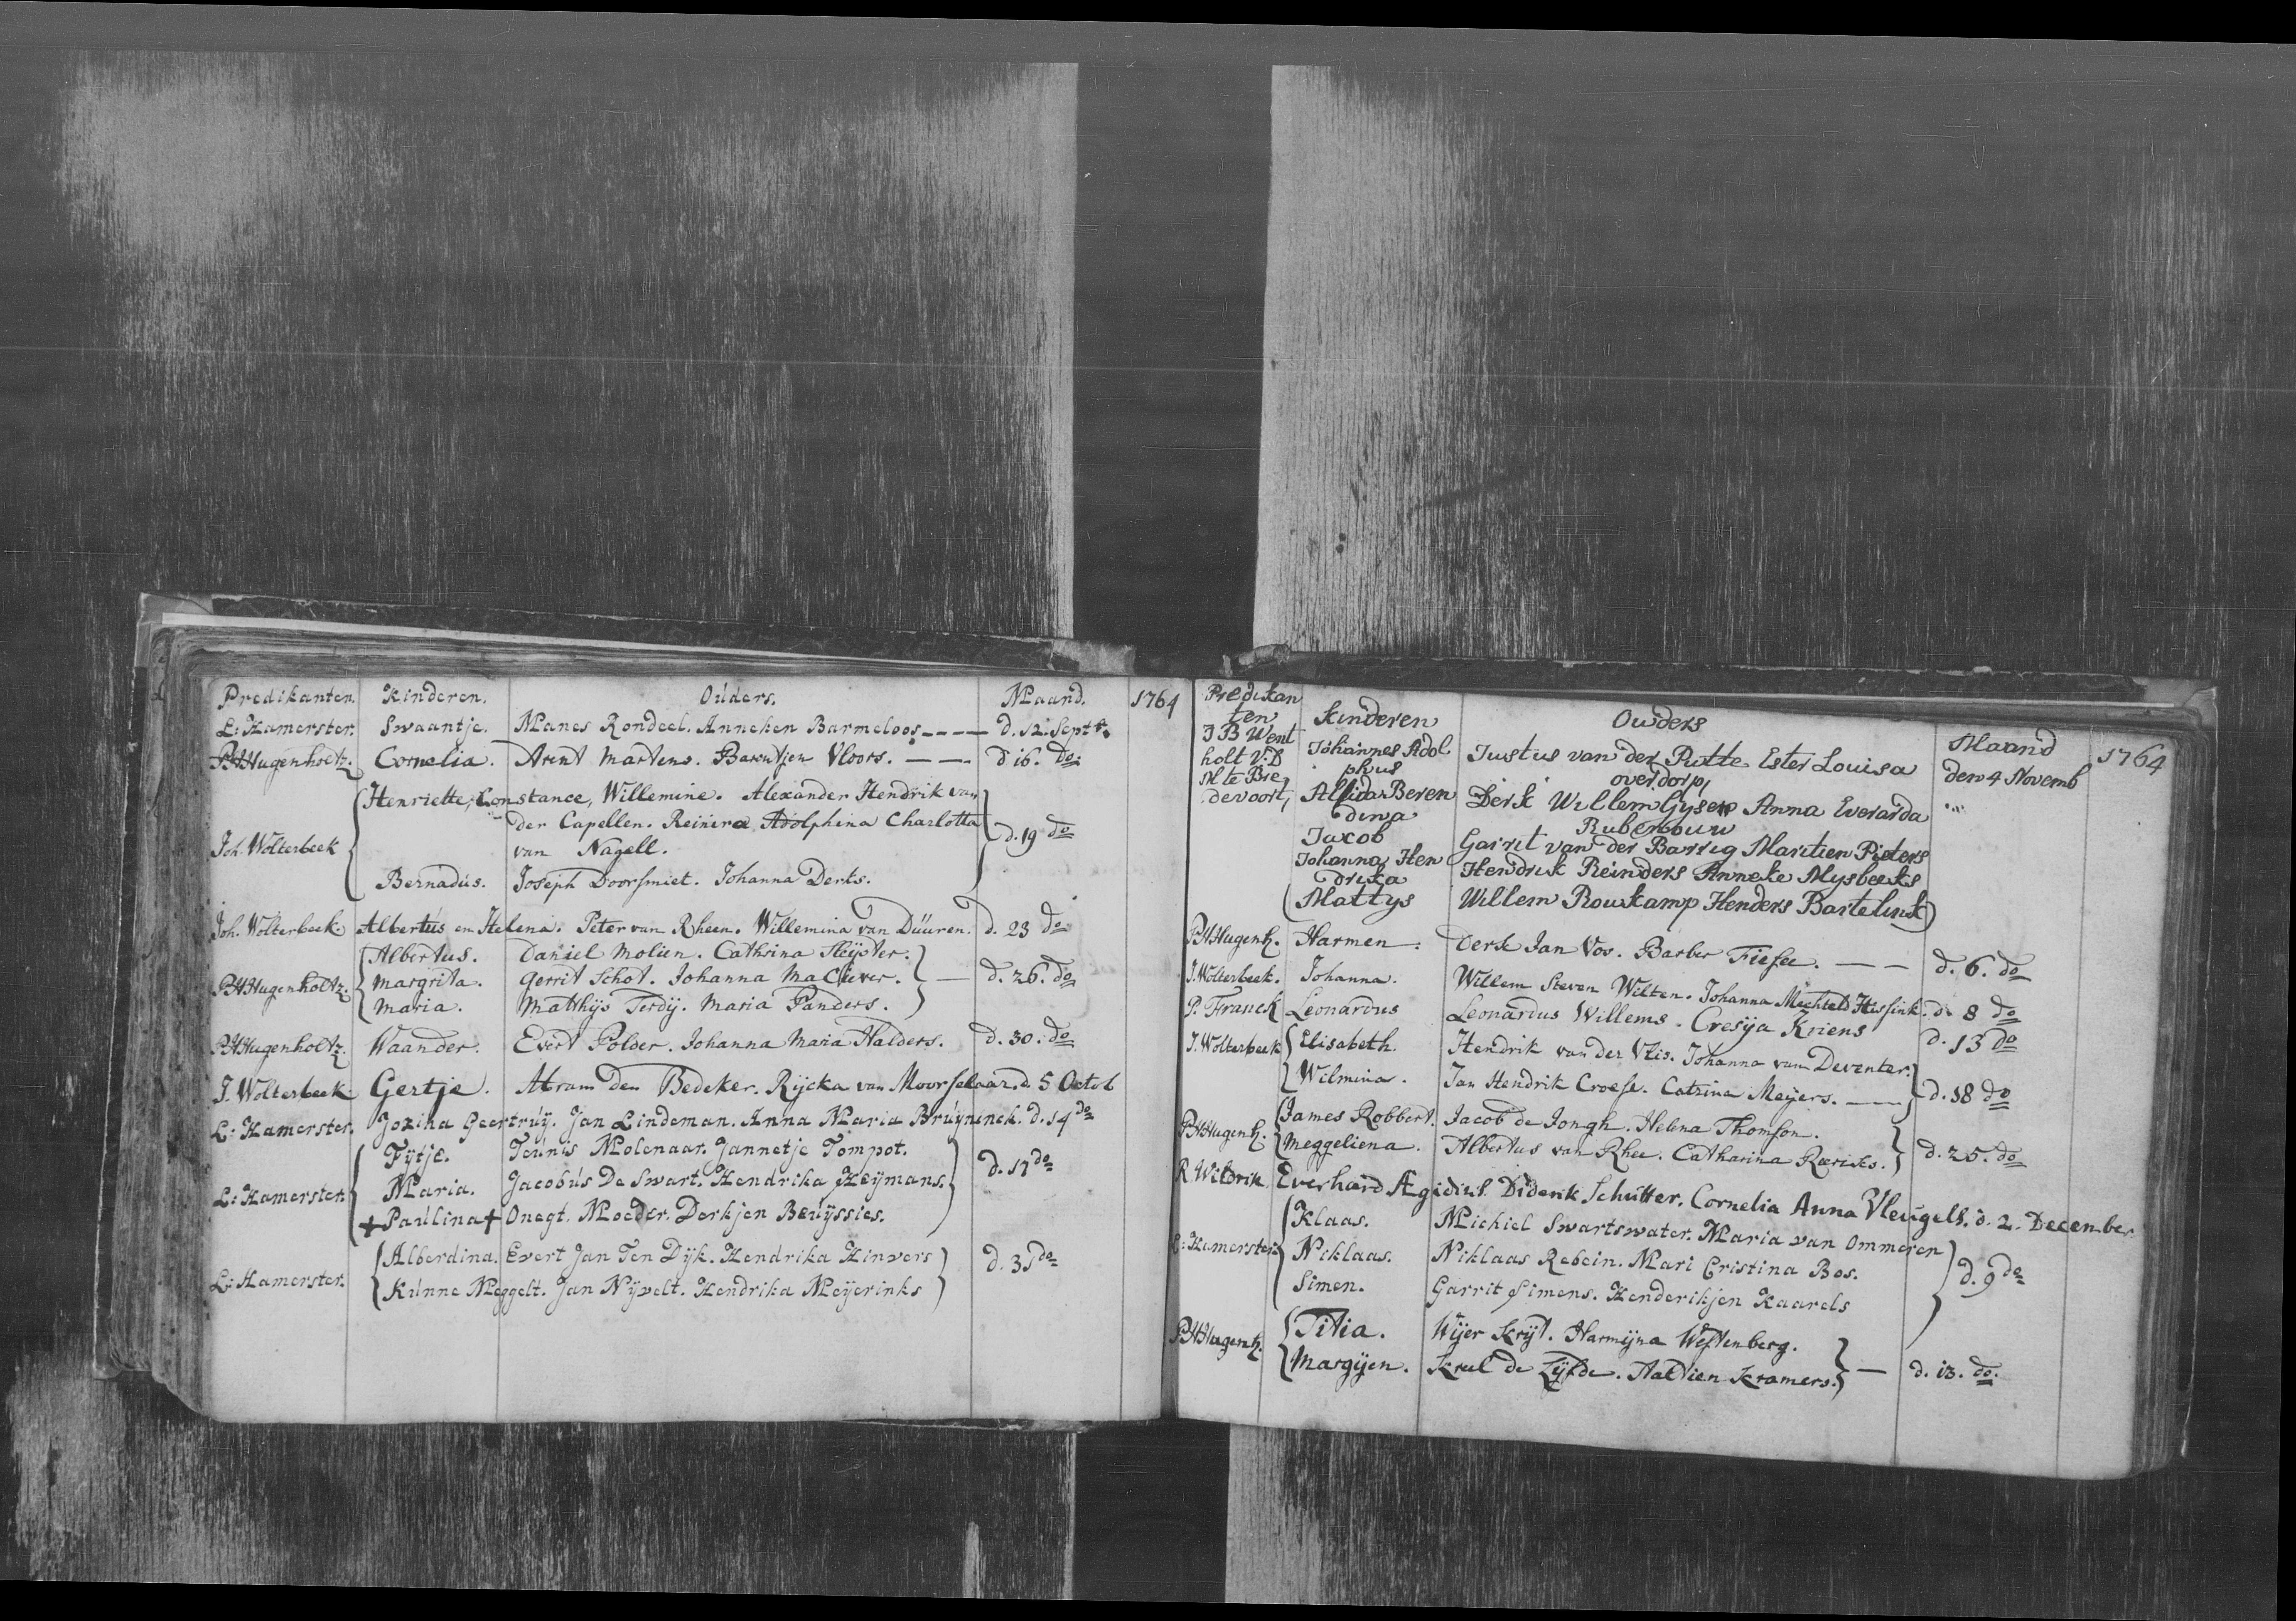 Predikanten. Kinderen. Ouders. Maand. 1764
L: Hamerster. Swaantje. Manes Rondeel. Anneken Barmeloos ---- d. 12. Septr.
P.H. Hugenholtz. Cornelia. Arent Martens. Barentjen Vloors. — — d 16. do.
Henriette, Constance, Willemine. Alexander Hendrik van
der Capellen. Reinira Adolphina Charlotta
Joh. Wolterbeek van Nagell. d. 19 do
Bernadus. Joseph Doorsmiet. Johanna Derks.
Joh. Wolterbeek Albertus en Helena. Peter van Rheen. Willemina van Düuren. d. 23 do
Albertus. Daniel Molien. Cathrina Sleyster.
P.H. Hugenholtz. Margrita. Gerrit Schot. Johanna — d. 26. do
Maria. Matthijs Terdij. Maria Panders.
P.H. Hugenholtz. Waander. Evert Polder. Johanna Maria Halders. d. 30. do
J. Wolterbeek Gertje. Abram Den Bedeker. Rijcka van Moorselaar. d. 5 Octob
L: Hamerster. Jozina Geertruy. Jan Lindeman. Anna Maria Bruyninck. d. 14 do
Fytje. Teunis Molenaar. Jannetje Tompot.
L: Hamerster. Maria. Jacobus De Swart. Hendrika Heymans. d. 17 do
+ Paulina + Onegt. Moeder. Derkjen Beuyssies.
Alberdina. Evert Jan Ten Dyk. Hendrika Hinvers
L: Hamerster. Kunne Meggelt. Jan Nyvelt. Hendrika Meyerinks d. 31 do
Predikan
ten Kinderen Ouders Maand 1764
J B Went
holt V:D Johannes Adol Justus van der Putte Ester Louisa den 4 Novemb
M te Bre phus overdorp,
devoort, Alida Beren Derk Willem Gysen Anna Everarda
dina Ruberbouw
Jacob Garrit van der Barreg Maritien Pieters
Johanna Hen Hendrik Reinders Anneke Mysbeeks
drika
Mattys Willem Rouskamp Henders Bartelink
P.H. Hugenh. Harmen. Derk Jan Vos. Barber Fiesee. — — d. 6. do
J. Wolterbeek. Johanna. Willem Steven Wilten. Johanna Mechteld Hissink. d. 8 do
P. Franck Leonardus Leonardus Willems. Cresija Kriens d. 13 do
J. Wolterbeek Elisabeth. Hendrik van der Vlis. Johanna van Deventer.
Wilmina. Jan Hendrik Croese. Catrina Meyers. — d. 18 do
James Robbert. Jacob de Jongh. Helena Thomson.
P.H. Hugenh. Meggeliena. Albertus van Rhee. Catharina Roeriks. d. 25. do
R. Wildrik Everhard Ægidius. Diderik Schutter. Cornelia Anna Vleugels. d. 2. December
Klaas. Michiel Swartswater. Maria van Ommeren
L: Hamerster. Niklaas. Niklaas Rebein. Mari Cristina Bos. d. 9 do
Simen. Garrit Simens. Henderikjen Kaarels
P.H. Hugenh. Titia. Wijer Krijt. Harmijna Westenberg.
Margijen. Krul de Lijfde. Aaltien Kramers. — d. 13. do.